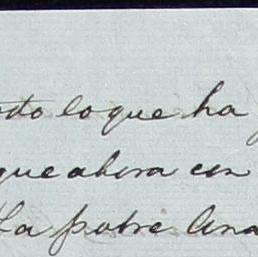 lo que ha
que ahora con
La pobre Ana